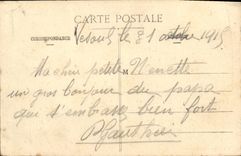 CARTE POSTALE
CORRESPONDANCE
Vesoul le 31 octobre 1915
Ma chère petite Nénette
un gros bonjour du papa
qui t'embrasse bien fort
P Gauthier